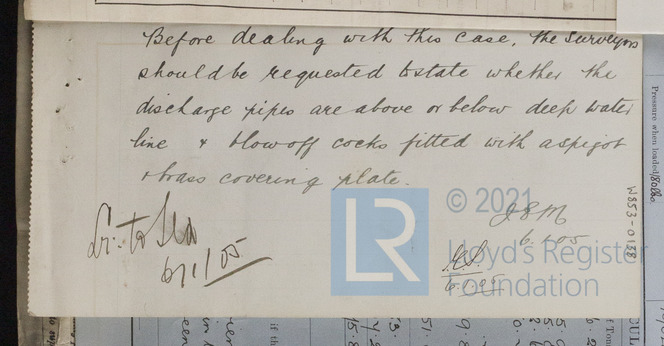 Before dealing with this case, the Surveyors
should be requested to state whether the
discharge pipes are above or below deep water
line & blow off cocks fitted with a spigot
& brass covering plate.
6/1/05
JSM
6.1.05
6.1.05
© 2021
Lloyd's Register
Foundation
LR
W853-0138
Pressure when loaded